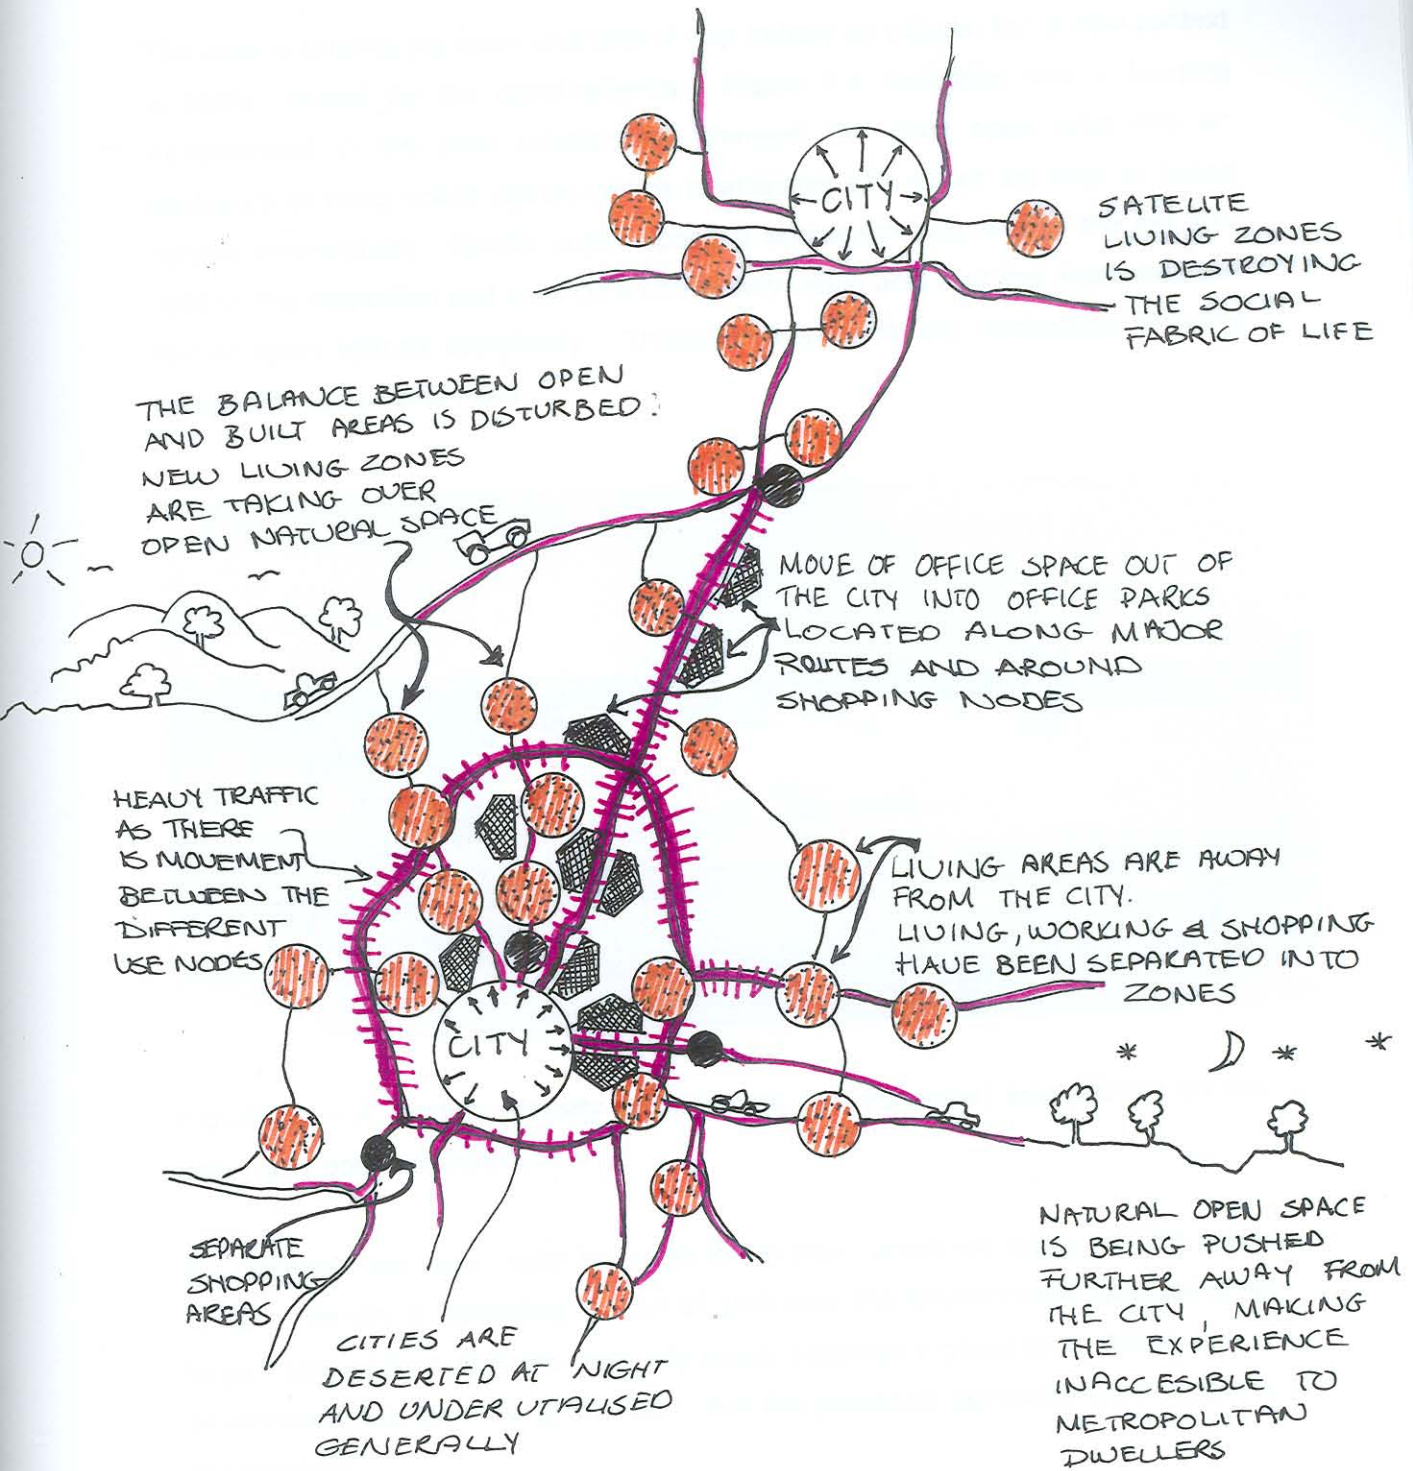 CITY
SATELITE
LIVING ZONES
IS DESTROYING
THE SOCIAL
FABRIC OF LIFE
THE BALANCE BETWEEN OPEN
AND BUILT AREAS IS DISTURBED:
NEW LIVING ZONES
ARE TAKING OVER
OPEN NATURAL SPACE
MOVE OF OFFICE SPACE OUT OF
THE CITY INTO OFFICE PARKS
LOCATED ALONG MAJOR
ROUTES AND AROUND
SHOPPING NODES
HEAVY TRAFFIC
AS THERE
IS MOVEMENT
BETWEEN THE
DIFFERENT
USE NODES
LIVING AREAS ARE AWAY
FROM THE CITY.
LIVING, WORKING & SHOPPING
HAVE BEEN SEPARATED INTO
ZONES
CITY
SEPARATE
SHOPPING
AREAS
CITIES ARE
DESERTED AT NIGHT
AND UNDER UTALISED
GENERALLY
NATURAL OPEN SPACE
IS BEING PUSHED
FURTHER AWAY FROM
THE CITY, MAKING
THE EXPERIENCE
INACCESIBLE TO
METROPOLITAN
DWELLERS